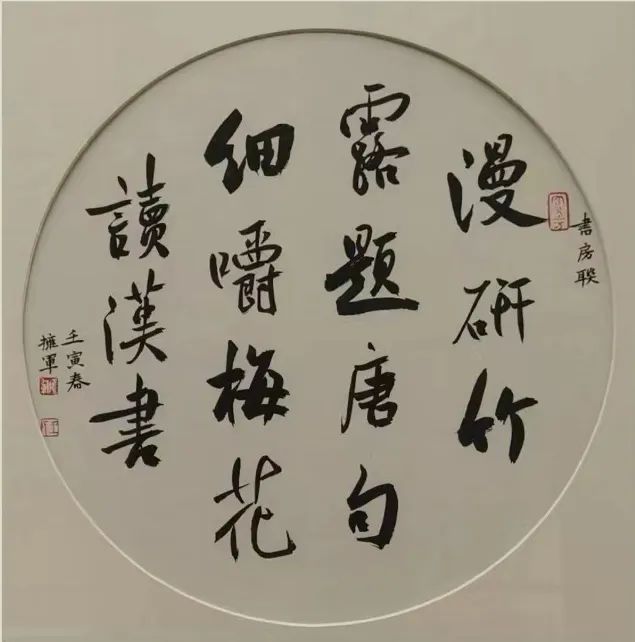 書房聯
漫研竹
露題唐句
細嚼梅花
讀漢書
壬寅春
擁軍